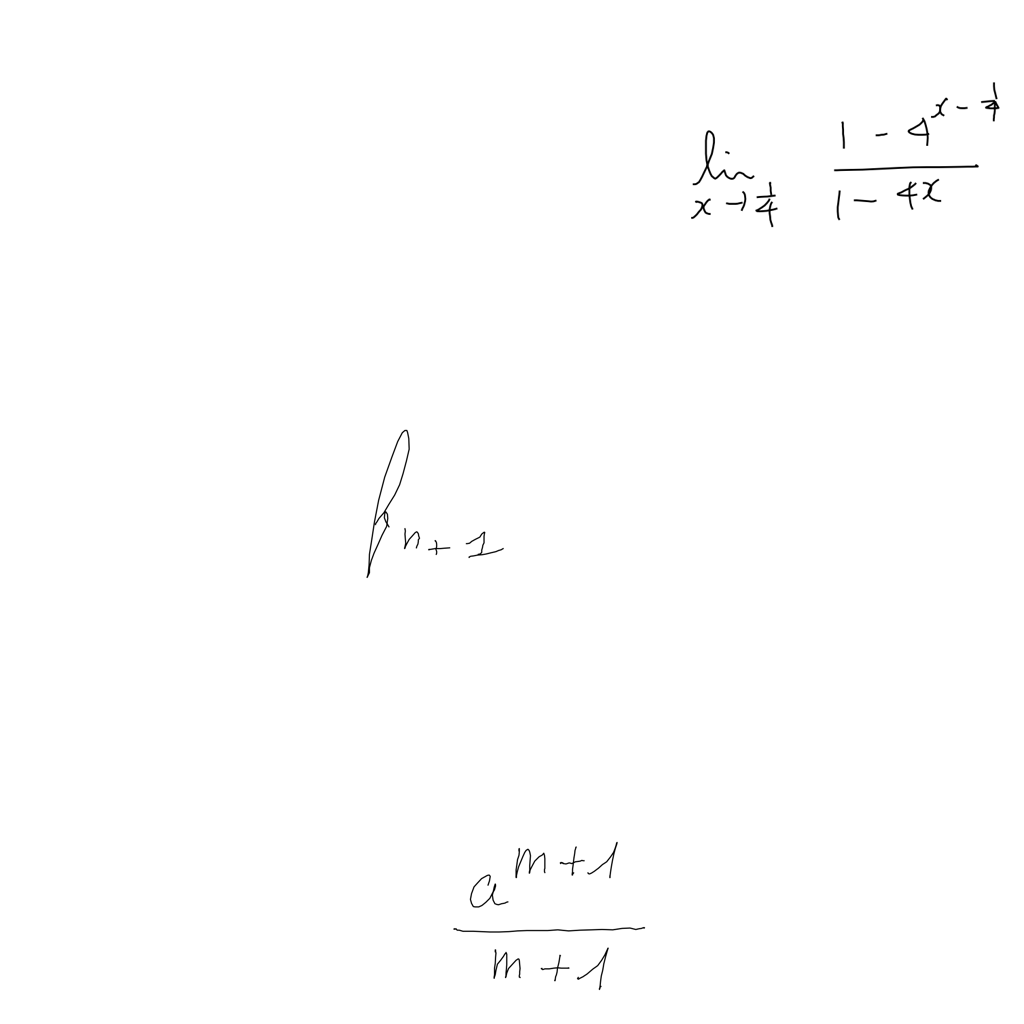 \lim_{x \to \frac{1}{4}} \frac{1 - 4^{x - \frac{1}{4}}}{1 - 4x}
f_{n+1}
\frac{a^{m+1}}{m+1}